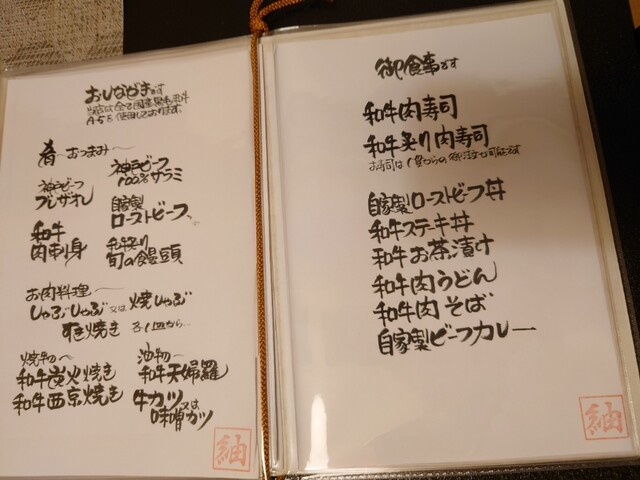 おしながきです
当店は全て国産黒毛和牛
A-5を使用しております。
肴~おつまみ~
神戸ビーフ
ブレザオレ
神戸ビーフ
100%サラミ
和牛
肉刺身
自家製
ローストビーフ、
和牛炙り
旬の饅頭
お肉料理~
しゃぶしゃぶ又は焼しゃぶ
すき焼き
焼もの~
和牛炭火焼き
和牛西京焼き
油物~
和牛天婦羅
牛カツ又は
味噌カツ
御食事です
和牛肉寿司
和牛炙り肉寿司
お寿司は1貫からの御注文可能です
自家製ローストビーフ丼
和牛ステーキ丼
和牛お茶漬け
和牛肉うどん
和牛肉そば
自家製ビーフカレー
紬
紬